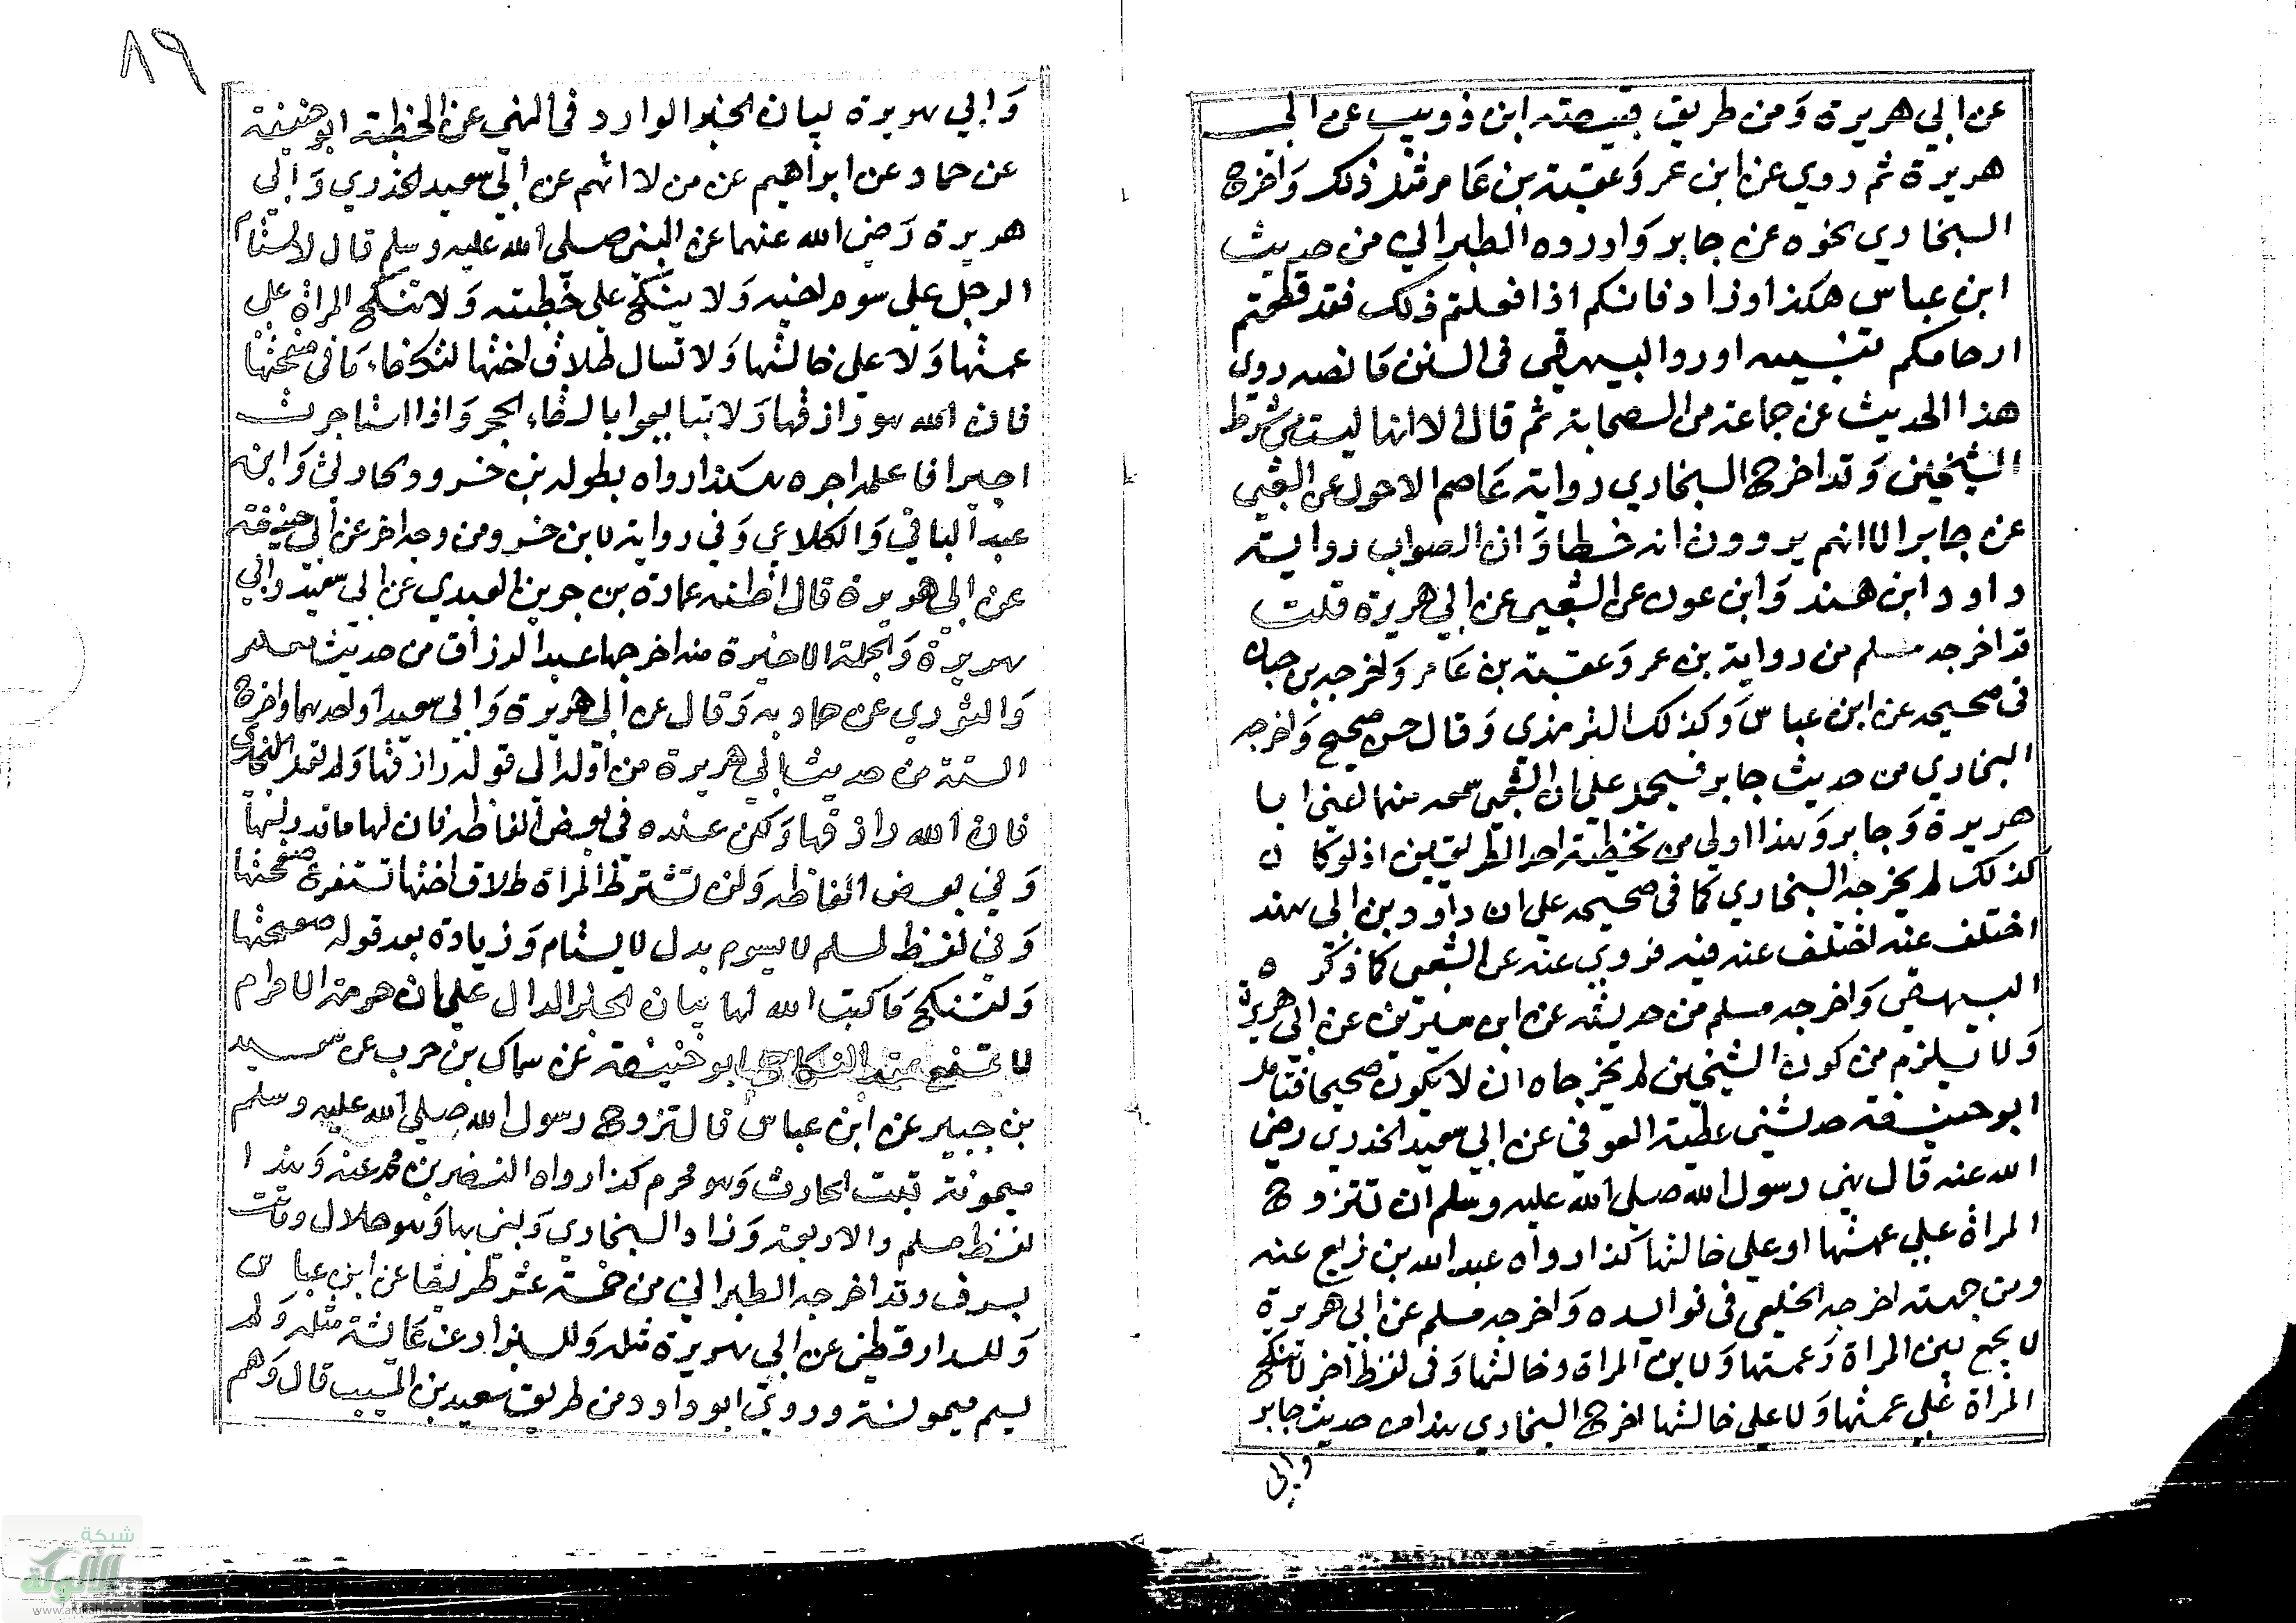 عن ابي هريرة ومن طريق قبيصته ابن ذوويب عن ابي
هريرة ثم روي عن ابن عمر وعقبة بن عامر مثل ذلك واخرج
البخاري نحوه عن جابر واورده الطبراني من حديث
ابن عباس هكذا وزاد فانكم اذا فعلتم ذلك فقد قطعتم
ارحامكم تنبيه اورد البيهقي في السنن ما نصه روي
هذا الحديث عن جماعة من الصحابة ثم قال الا انها ليست من شرط
الشيخين وقد اخرج البخاري رواية عاصم الاحول عن الشعبي
عن جابر الا انهم يروون انه خطا وان الصواب رواية
داود ابن هند وابن عون عن الشعبي عن ابي هريرة قلت
قد اخرجه مسلم من رواية بن عمر وعقبة بن عامر واخرجه بن حبان
في صحيحه عن ابن عباس وكذلك الترمذي وقال حسن صحيح واخرجه
البخاري من حديث جابر فيحمل علي ان الشعبي سمعه منهما اعني ابا
هريرة وجابر وهذا اولي من تخطية احد الطريقين اذ لو كان
كذلك لم يخرجه البخاري كما في صحيحه علي ان داود بن ابي هند
اختلف عنه اختلف عنه فيه فروي عنه عن الشعبي كما ذكره
البيهقي واخرجه مسلم من حديثه عن ابن سيرين عن ابي هريرة
ولا يلزم من كون الشيخين لم يخرجاه ان لا يكون صحيحا فتامل
ابو حنيفة حدثني عطية العوفي عن ابي سعيد الخدري رضي
الله عنه قال نهي رسول الله صلي الله عليه وسلم ان تتزوج
المراة علي عمتها او علي خالتها كذا رواه عبد الله بن بزيع عنه
ومن جهته اخرجه الخلعي في فوايده واخرجه مسلم عن ابي هريرة
لا يجمع بين المراة وعمتها ولا بين المراة وخالتها وفي لفظ اخر لا تنكح
المراة علي عمتها ولا علي خالتها اخرج البخاري هذا من حديث جابر
وابي
٨٩
وابي هريرة بيان الخبر الوارد في النهي عن الخطبة ابو حنيفة
عن حماد عن ابراهيم عن من لا اتهم عن ابي سعيد الخدري وابي
هريرة رضي الله عنهما عن النبي صلي الله عليه وسلم قال لا يستام
الرجل علي سوم اخيه ولا ينكح علي خطبته ولا تنكح المراة علي
عمتها ولا علي خالتها ولا تسال طلاق اختها لتكفاء ما في صحفتها
فان الله هو رازقها ولا تبايعوا بالقاء الحجر واذا استاجرت
اجيرا فاعلمه اجره هكذا رواه بطوله بن خسرو والحارثي وابن
عبد الباقي والكلاعي وفي رواية لابن خسرو من وجه اخر عن ابي حنيفة
عن ابي هريرة قال اظنه عمارة بن جوين العبدي عن ابي سعيد وابي
هريرة والجملة الاخيرة منه اخرجها عبد الرزاق من حديث معمر
والثوري عن حماد به وقال عن ابي هريرة وابي سعيد او احدهما واخرج
الستة من حديث ابي هريرة من اوله الي قوله رازقها ولم تقل البخاري
فان الله رازقها ولكن عنده في بعض الفاظه فان لها ما قدر لها
وفي بعض الفاظه ولن تشترط المراة طلاق اختها تستفرغ صحفتها
وفي لفظ لمسلم لا يسوم بدل لا يستام وزيادة بعد قوله صحفتها
ولتنكح ما كتب الله لها بيان الخبر الدال علي ان حرمة الاحرام
لا تمنع عقد النكاح ابو حنيفة عن سماك بن حرب عن سعيد
بن جبير عن ابن عباس قال تزوج رسول الله صلي الله عليه وسلم
ميمونة بنت الحارث وهو محرم كذا رواه النضر بن محمد عنه وهذا
لفظ مسلم والاربعة وزاد البخاري وبني بها وهو حلال وماتت
بسرف وقد اخرجه الطبراني من خمسة عشر طريقا عن ابن عباس
وللدارقطني عن ابي هريرة مثله وللبزار عن عايشة مثله ولم
يسم ميمونة وروي ابو داود من طريق سعيد بن المسيب قال وهم
شبكة
الألوكة
www.alukah.net